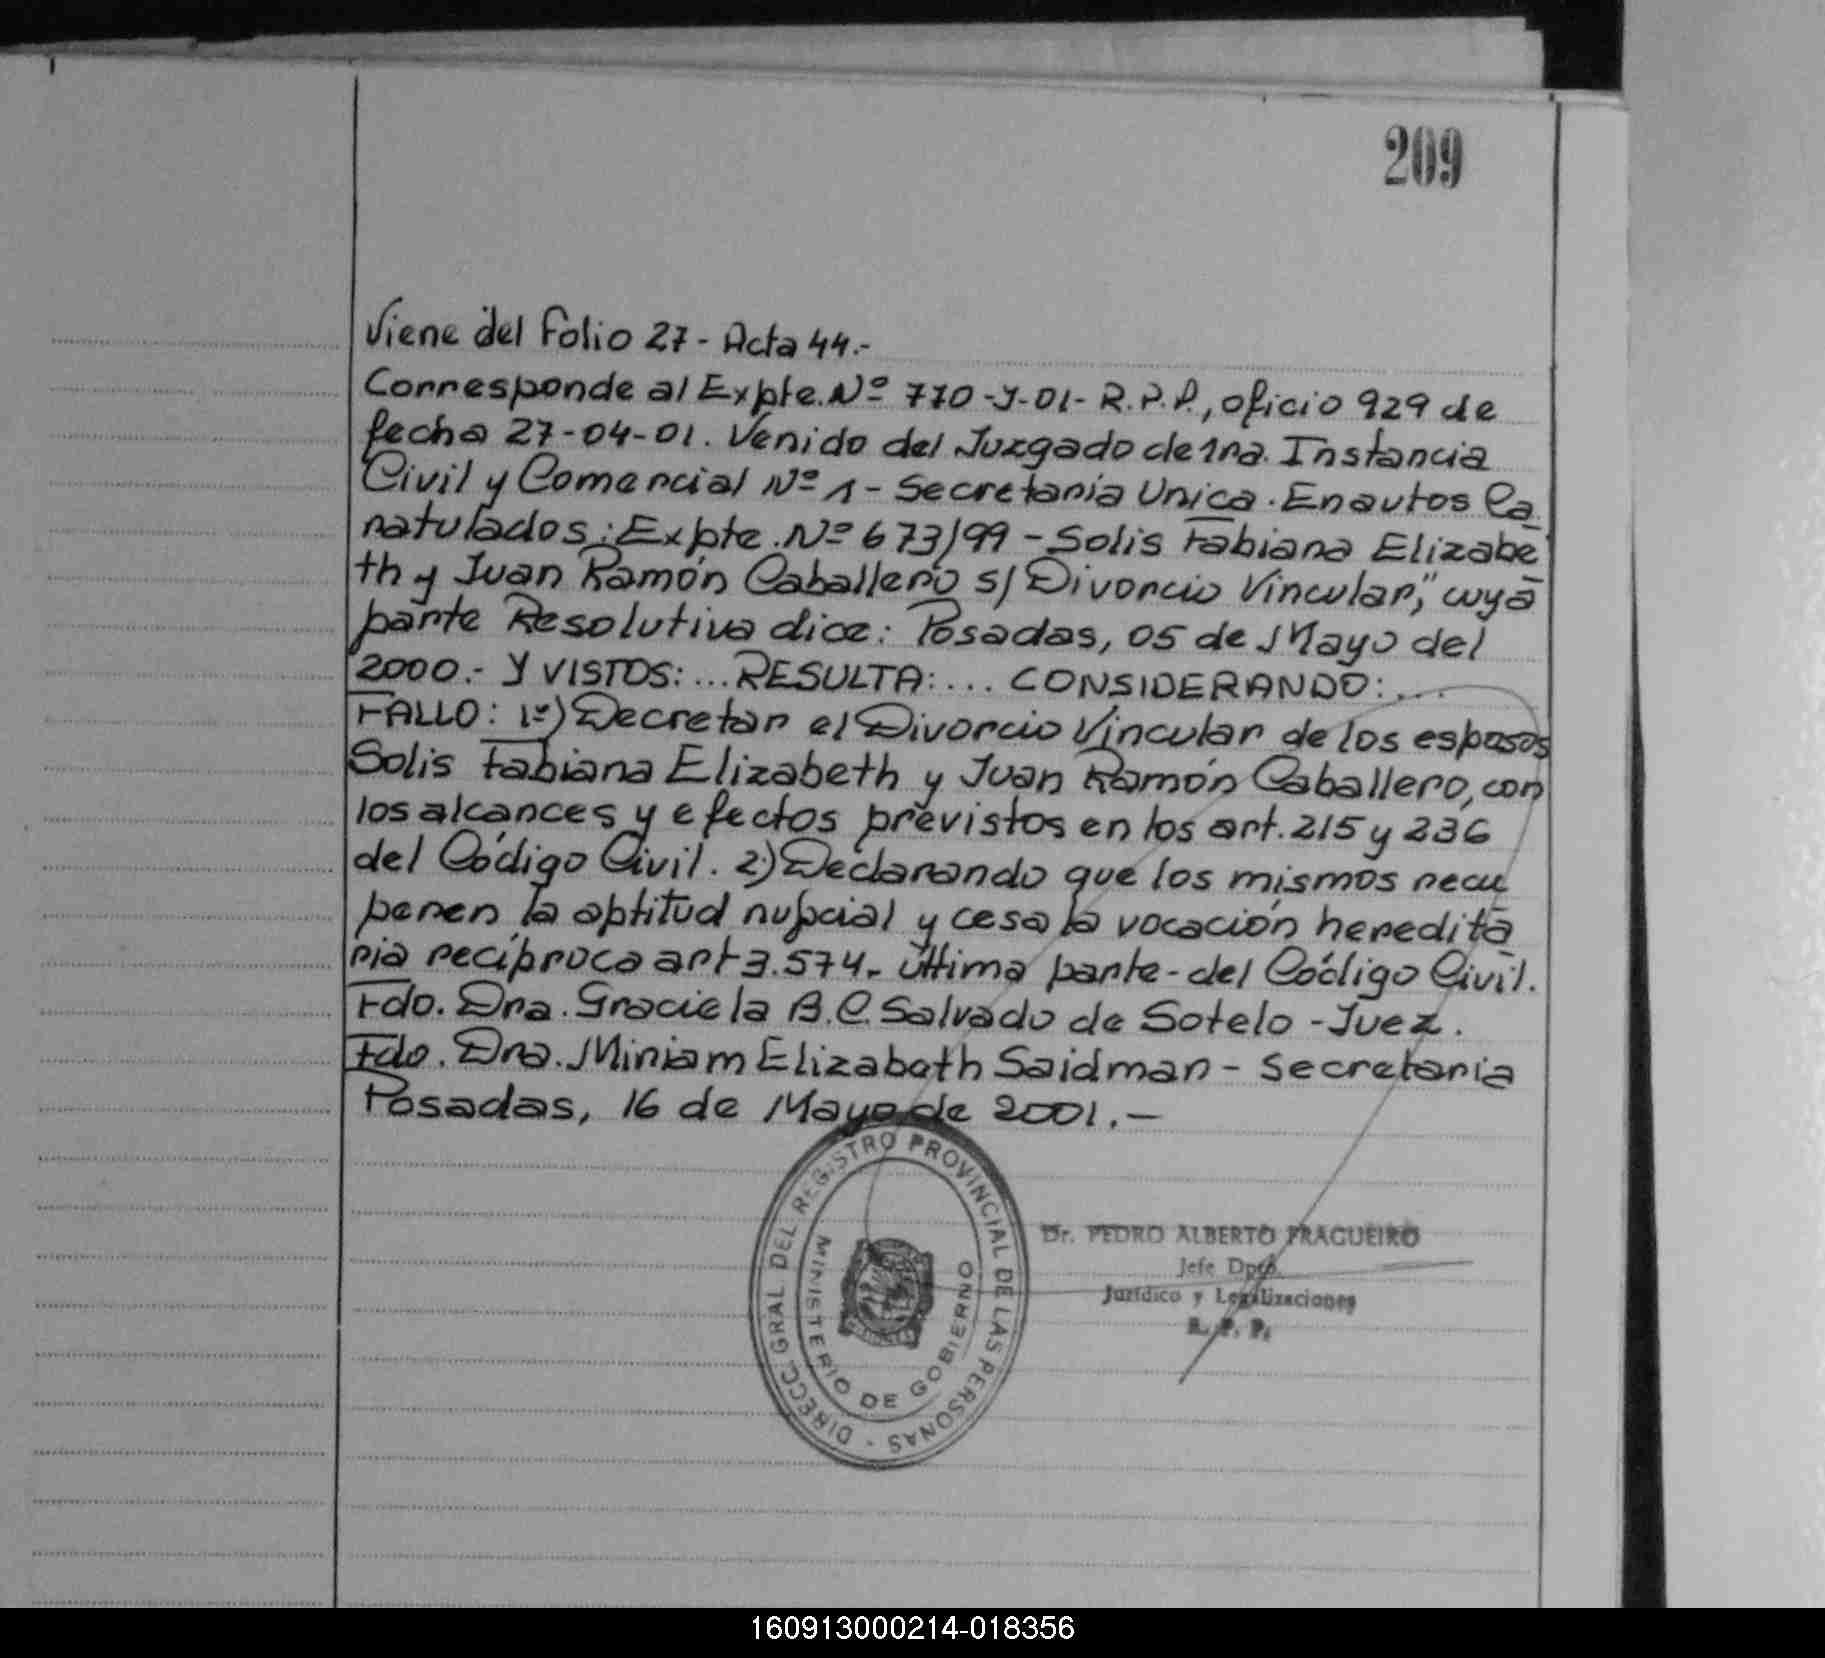 209
Viene del Folio 27 - Acta 44.-
Corresponde al Expte. Nº 770-J-01- R.P.P., oficio 929 de
fecha 27-04-01. Venido del Juzgado de 1ra. Instancia
Civil y Comercial Nº 1 - Secretaria Unica. En autos Ca
ratulados: Expte. Nº 673/99 - Solis Fabiana Elizabe
th y Juan Ramón Caballero s/ Divorcio Vincular," cuya
parte Resolutiva dice: Posadas, 05 de Mayo del
2000.- Y VISTOS: ... RESULTA: ... CONSIDERANDO: ...
FALLO: 1º) Decretar el Divorcio Vincular de los esposos
Solis Fabiana Elizabeth y Juan Ramón Caballero, con
los alcances y efectos previstos en los art. 215 y 236
del Código Civil. 2) Declarando que los mismos recu
peren la aptitud nupcial y cesa la vocación heredita
ria recíproca art 3.574. última parte - del Código Civil.
Fdo. Dra. Graciela B.C. Salvado de Sotelo - Juez.
Fdo. Dra. Miriam Elizabeth Saidman - secretaria
Posadas, 16 de Mayo de 2001.-
DIRECC. GRAL. DEL REGISTRO PROVINCIAL DE LAS PERSONAS -
MINISTERIO DE GOBIERNO
Dr. PEDRO ALBERTO FRAGUEIRO
Jefe Dpto.
Jurídico y Legalizaciones
R. P. P.
160913000214-018356